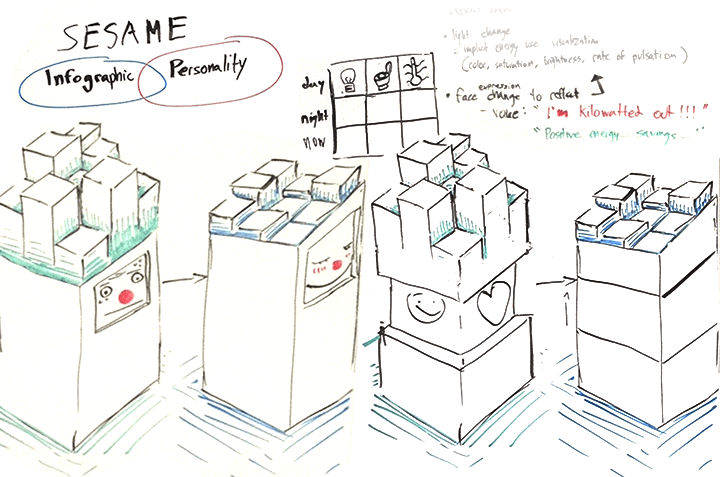 SESAME
Infographic
Personality
day
night
now
• light change
implicit energy use visualization
(color, saturation, brightness, rate of pulsation)
expression
• face change to reflect
- voice: "I'm Kilowatted out!!!"
"Positive energy... savings..."